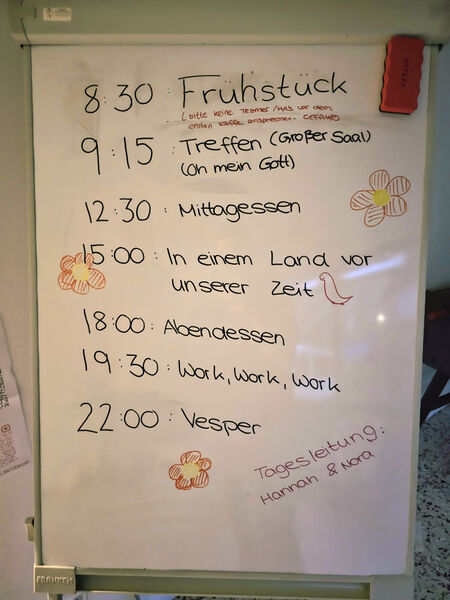 8:30 Frühstück
(bitte keine Teamer/HAs vor dem
ersten Kaffe ansprechen. GEFAHR)
9:15 Treffen (Großer Saal)
(Oh mein Gott)
12:30 : Mittagessen
15:00 : In einem Land vor
unserer Zeit
18:00 : Abendessen
19:30 : Work, Work, Work
22:00 : Vesper
Tagesleitung:
Hannah & Nora
FRANKEN